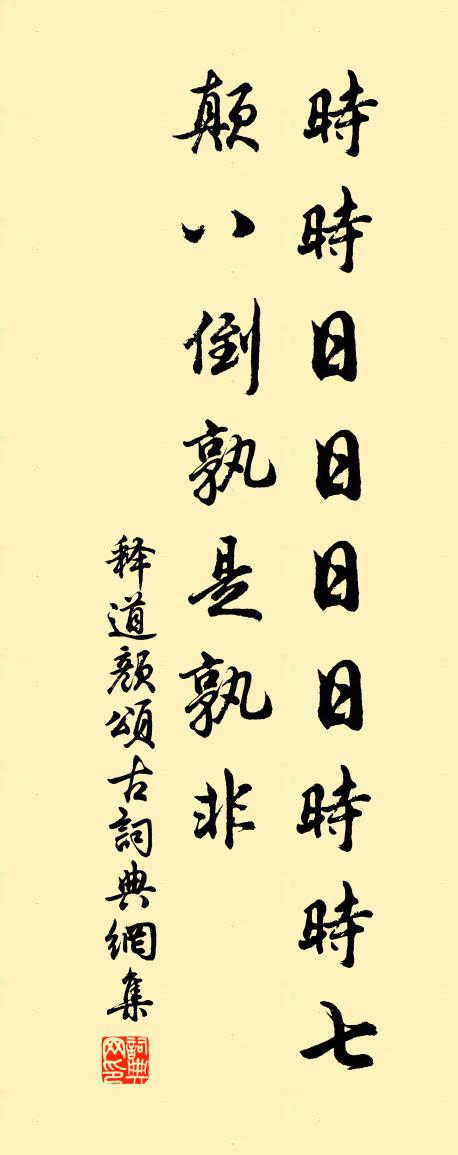 時時日日日日時時七
顛八倒孰是孰非
释道顏頌古詞典網集
詞典网印